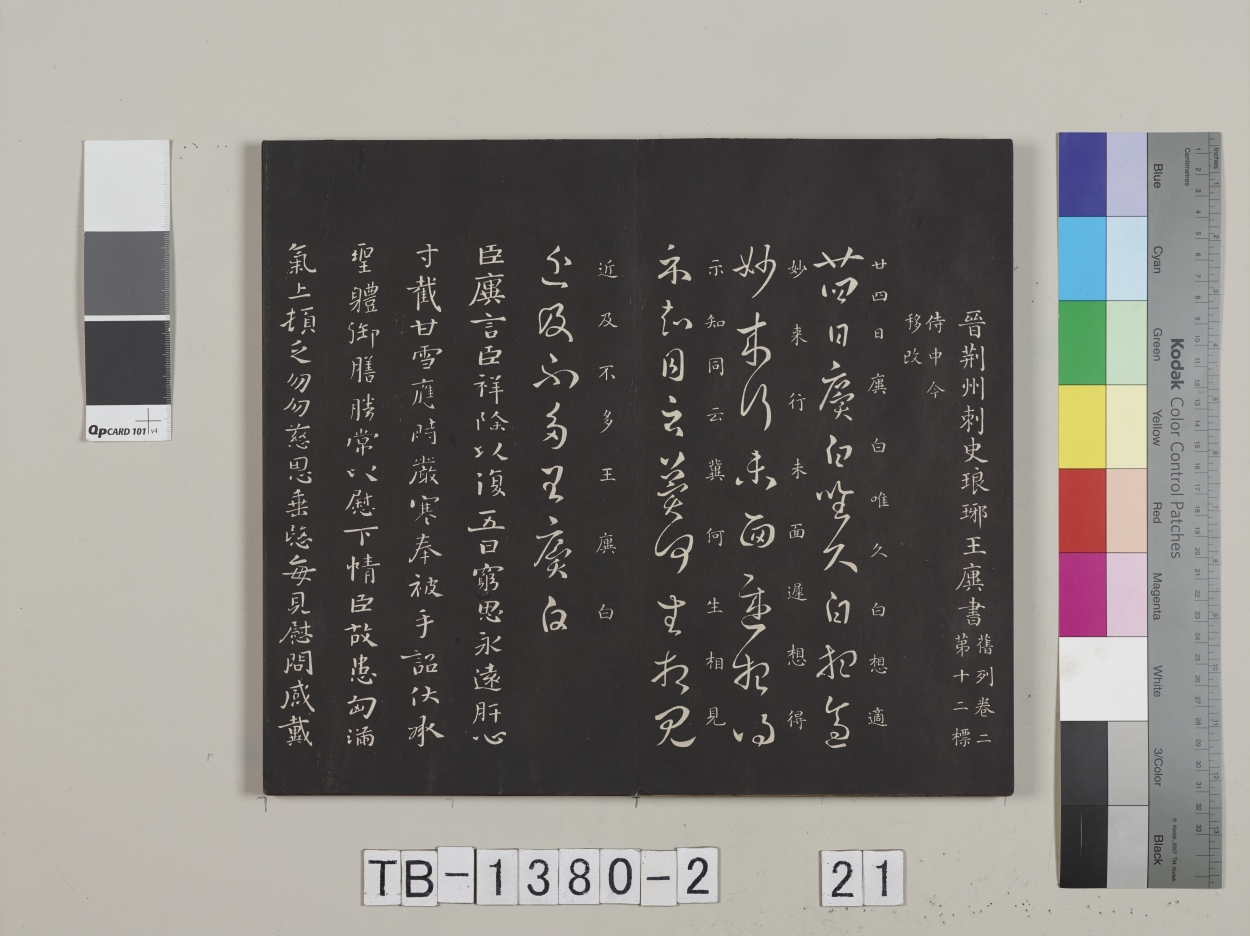 晉荆州刺史琅琊王廙書
舊列卷二
第十二標
侍中今
移改
廿四日廙白唯久白想適
廿四日廙白唯久白想適
妙来行未面遲想得
妙来行未面遲想得
示知同云冀何生相見
示知同云冀何生相見
近及不多王廙白
近及不多王廙白
臣廙言臣祥除以復五日窮思永遠肝心
寸截甘雪應時嚴寒奉被手詔伏承
聖體御膳勝常以慰下情臣故患匈滿
氣上頓乏勿勿慈恩垂愍每見慰問感戴
QPCARD 101 v4
Kodak Color Control Patches
Blue
Cyan
Green
Yellow
Red
Magenta
White
3/Color
Black
Inches
Centimetres
TB-1380-2
21